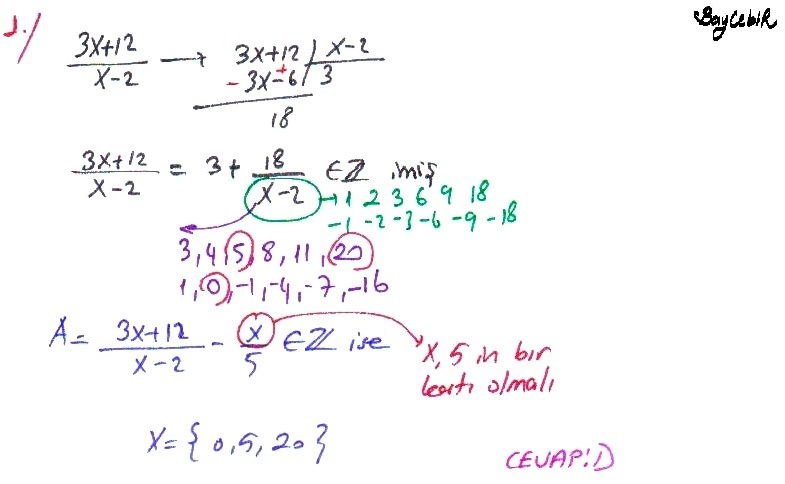 BayCebiR
1./
3x+12/x-2 → 3x+12 | x-2
- 3x-6 + | 3
18
3x+12/x-2 = 3 + 18/x-2 ∈ Z imiş
→ 1 2 3 6 9 18
-1 -2 -3 -6 -9 -18
3, 4, 5, 8, 11, 20
1, 0, -1, -4, -7, -16
A = 3x+12/x-2 - x/5 ∈ Z ise
x, 5 in bir
katı olmalı
x = { 0, 5, 20 }
CEVAP: D